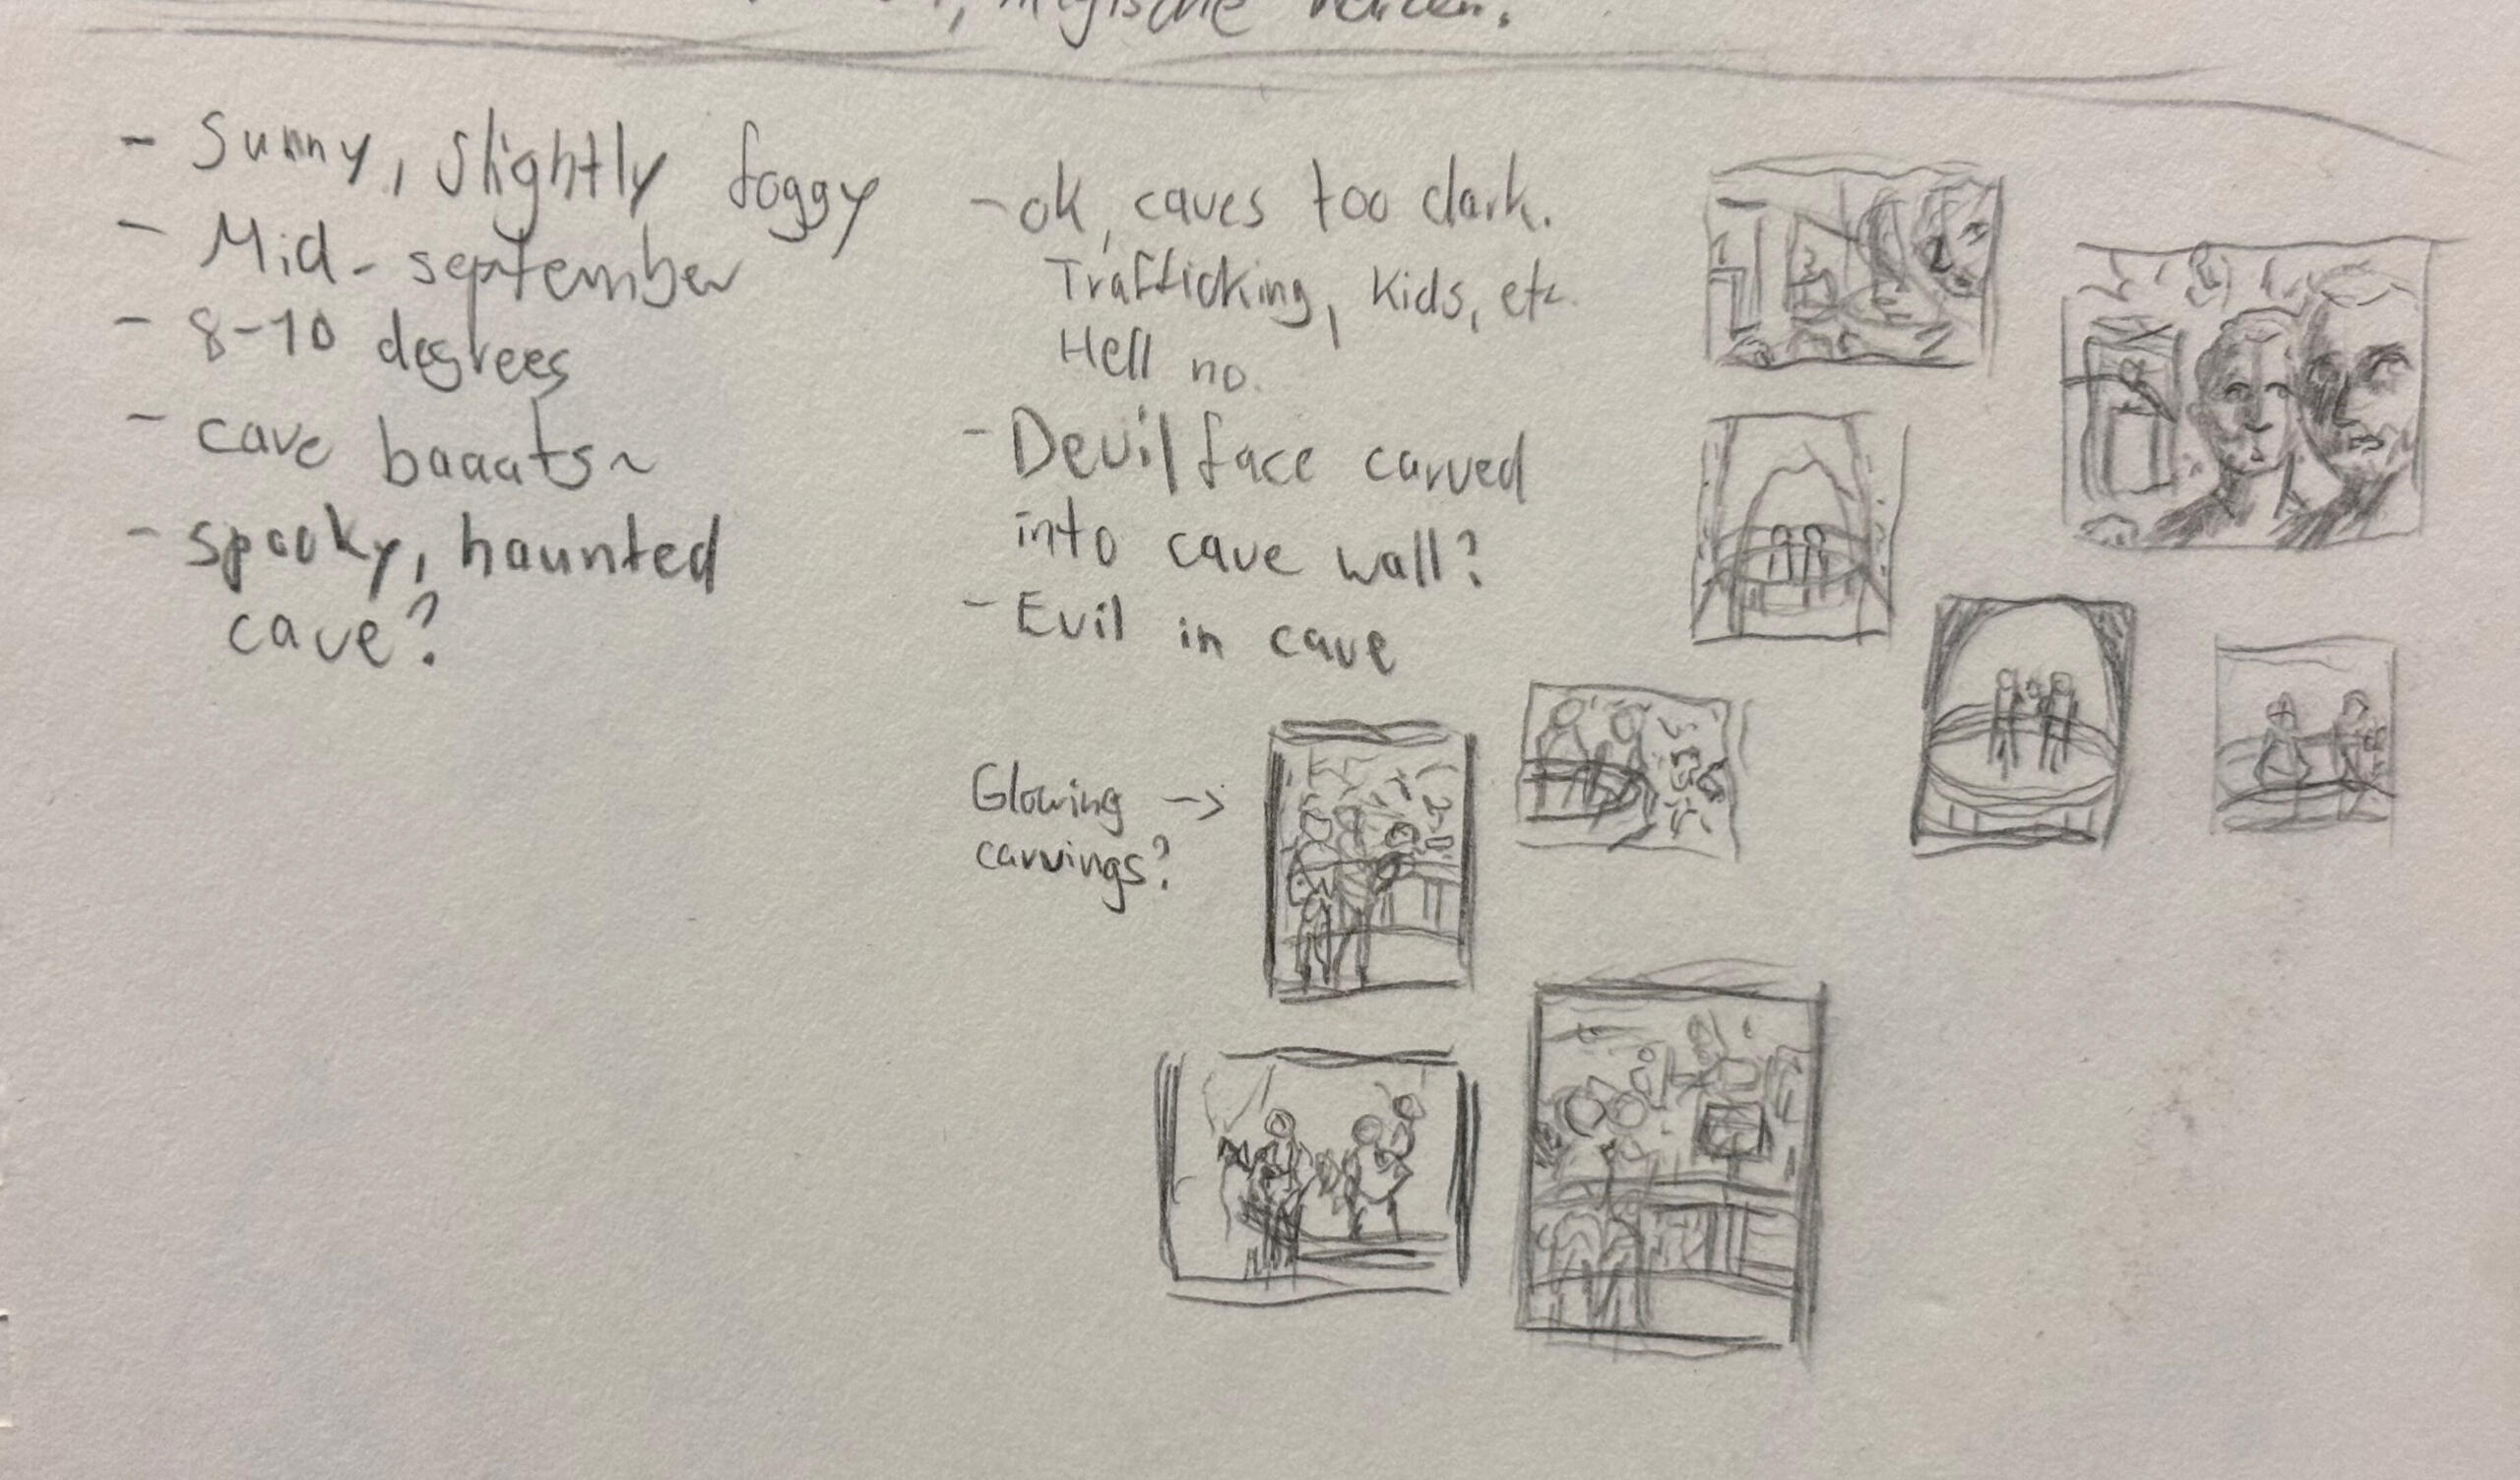 magische
- Sunny, slightly foggy
- Mid-september
- 8-10 degrees
- cave baaats~
- spooky, haunted
cave?
- ok, caves too dark.
Trafficking, kids, etc.
Hell no.
- Devil face carved
into cave wall?
- Evil in cave
Glowing ->
carvings?